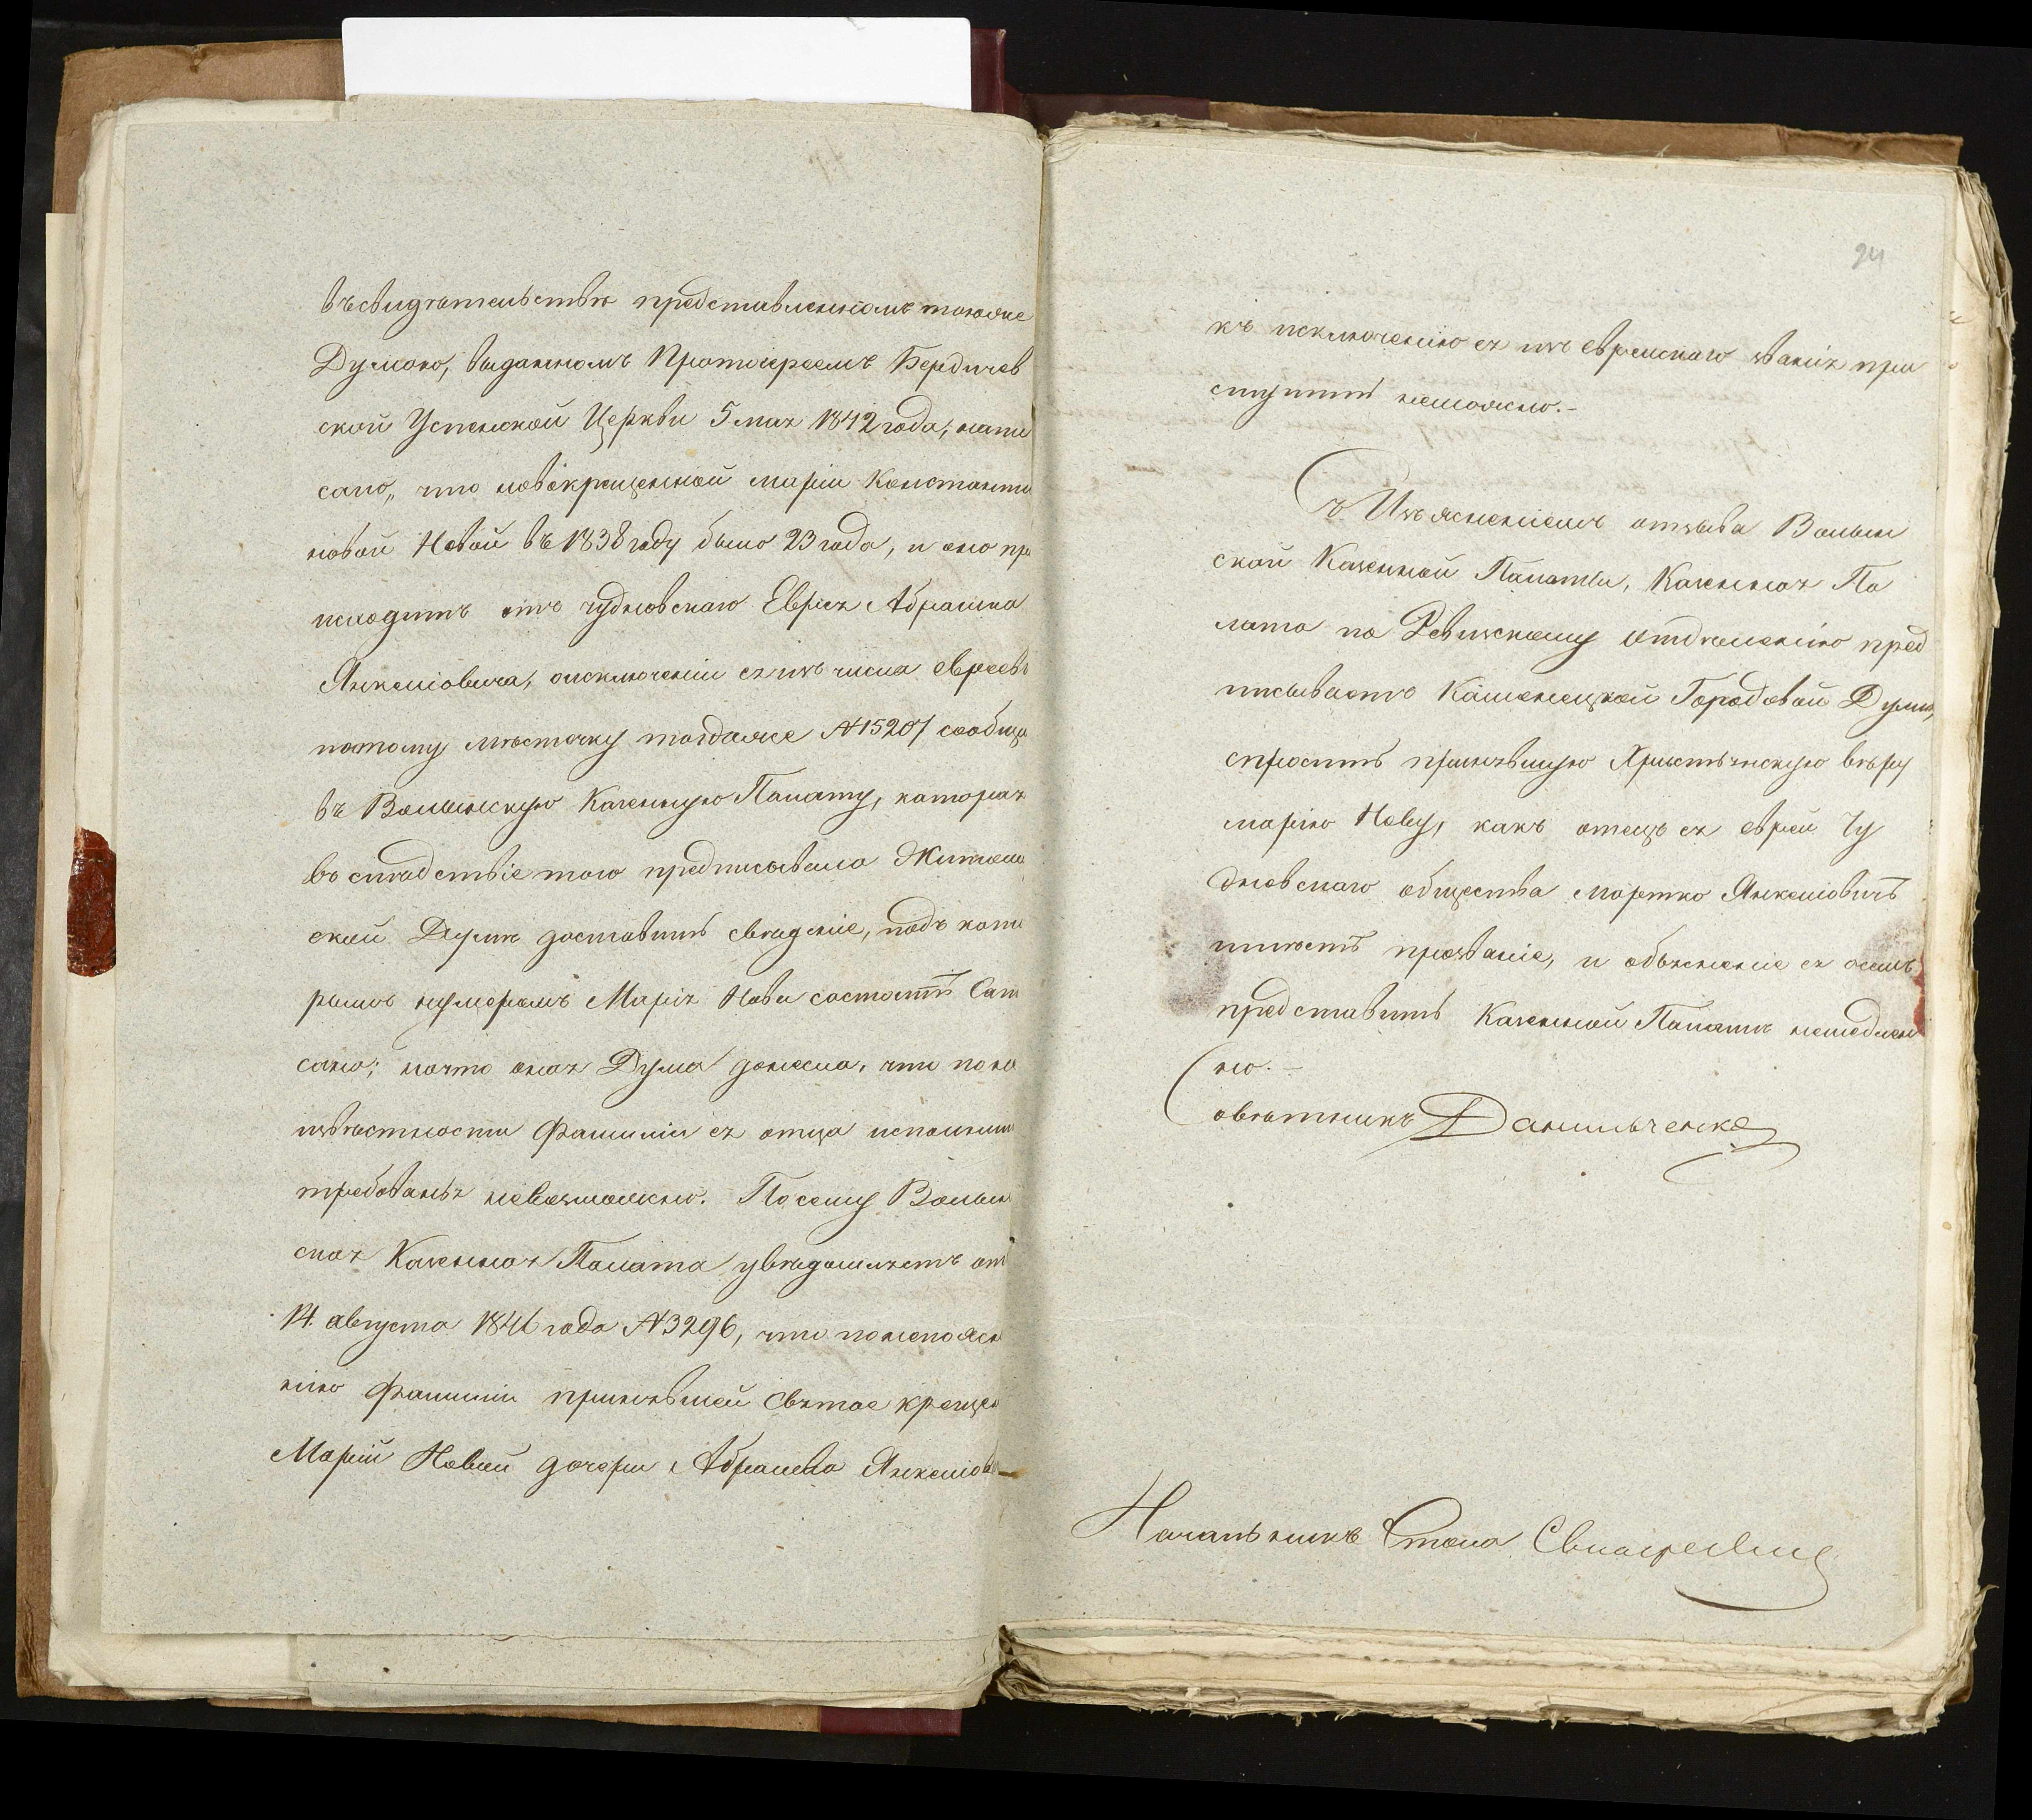 въ свидѣтельствѣ представленномъ тоюже
Думою, выданномъ Протоіереемъ Бердичев
ской Успенской Церкви 5 мая 1842 года, напи
сано,, что новокрещенной маріи Константи
новой Новой въ 1838 году было 23 года, и оно пр
исходитъ отъ чудновскаго Еврея Абрашка
Янкеліовича, о исключеніи ея изъ числа евреевъ
потому мѣстечку тогдаже N 15207 сообща
въ Волынскую Казенную Палату, которая
въ слѣдствіе того предписывала Житом
ской Думѣ доставить свѣденіе, подъ кото
рымъ нумеромъ Марія Нова состоитъ
сано; на что оная Дума донесла, что по не
извѣстности Фамиліи ея отца исполнить
требованья невозможно. Посему Волын
ская Казенная Палата увѣдомляетъ отъ
14. августа 1846 года N 3296, что по непоясн
нію Фамиліи принявшей Святое крещен
Маріи Новой дочери Абрашка Янкеліов
24
къ исключенію ея изъ еврейскаго званія при
ступить неможно.-
Съ Изъясненіемъ отзыва Волын
ской Казенной Палаты, Казенная Па
лата по Ревизскому отдѣленію пред
писываетъ Каменецкой Городовой Думѣ,
спросить принявшую Христьянскую вѣру
марію Нову, какъ отецъ ея еврей Чу
дновскаго общества мортко Янкеліовичъ
имѣетъ прозваніе, и объясненіе ея о семъ
представить Казенной Палатѣ немедлен
но.-
Совѣтникъ Данильченко
Начальникъ Стола